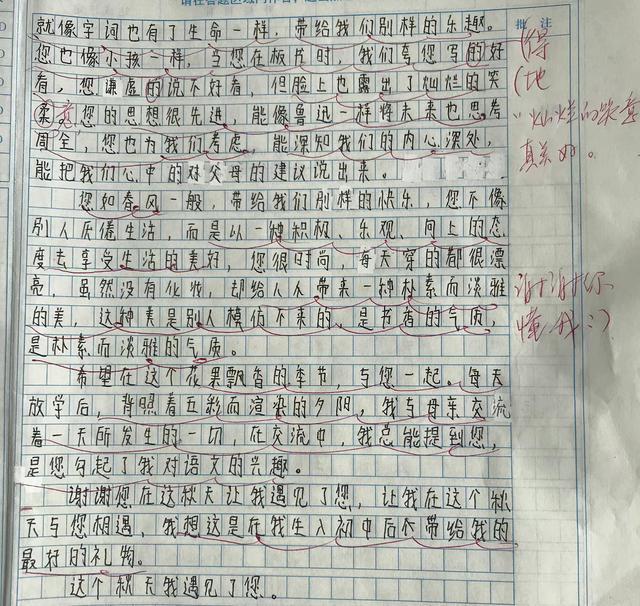 就像字词也有了生命一样，带给我们别样的乐趣。
批 注
您也像小孩一样，当您在板书时，我们夸您写的好
(得
看，您谦虚的说不好看，但脸上也露出了灿烂的笑
(地
柔意您的思想很先进，能像鲁迅一样将未来也思考
"灿烂的笑意
周全，您也为我们考虑，能深知我们的内心深处，
真美好。
能把我们心中的对父母的建议说出来。
您如春风一般，带给我们别样的快乐，您不像
别人厌倦生活，而是以一种积极、乐观、向上的态
度去享受生活的美好，您很时尚，每天穿的都很漂
亮，虽然没有化妆，却给人人带来一种朴素而淡雅
谢谢你
的美，这种美是别人模仿不来的，是书香的气质，
懂我:)
是朴素而淡雅的气质。
希望在这个花果飘香的季节，与您一起。每天
放学后，背照着五彩而渲染的夕阳，我与母亲交流
着一天所发生的一切，在交流中，我总能提到您，
是您勾起了我对语文的兴趣。
谢谢您在这秋天让我遇见了您，让我在这个秋
天与您相遇，我想这是在我生入初中后不带给我的
最好的礼物。
这个秋天我遇见了您。